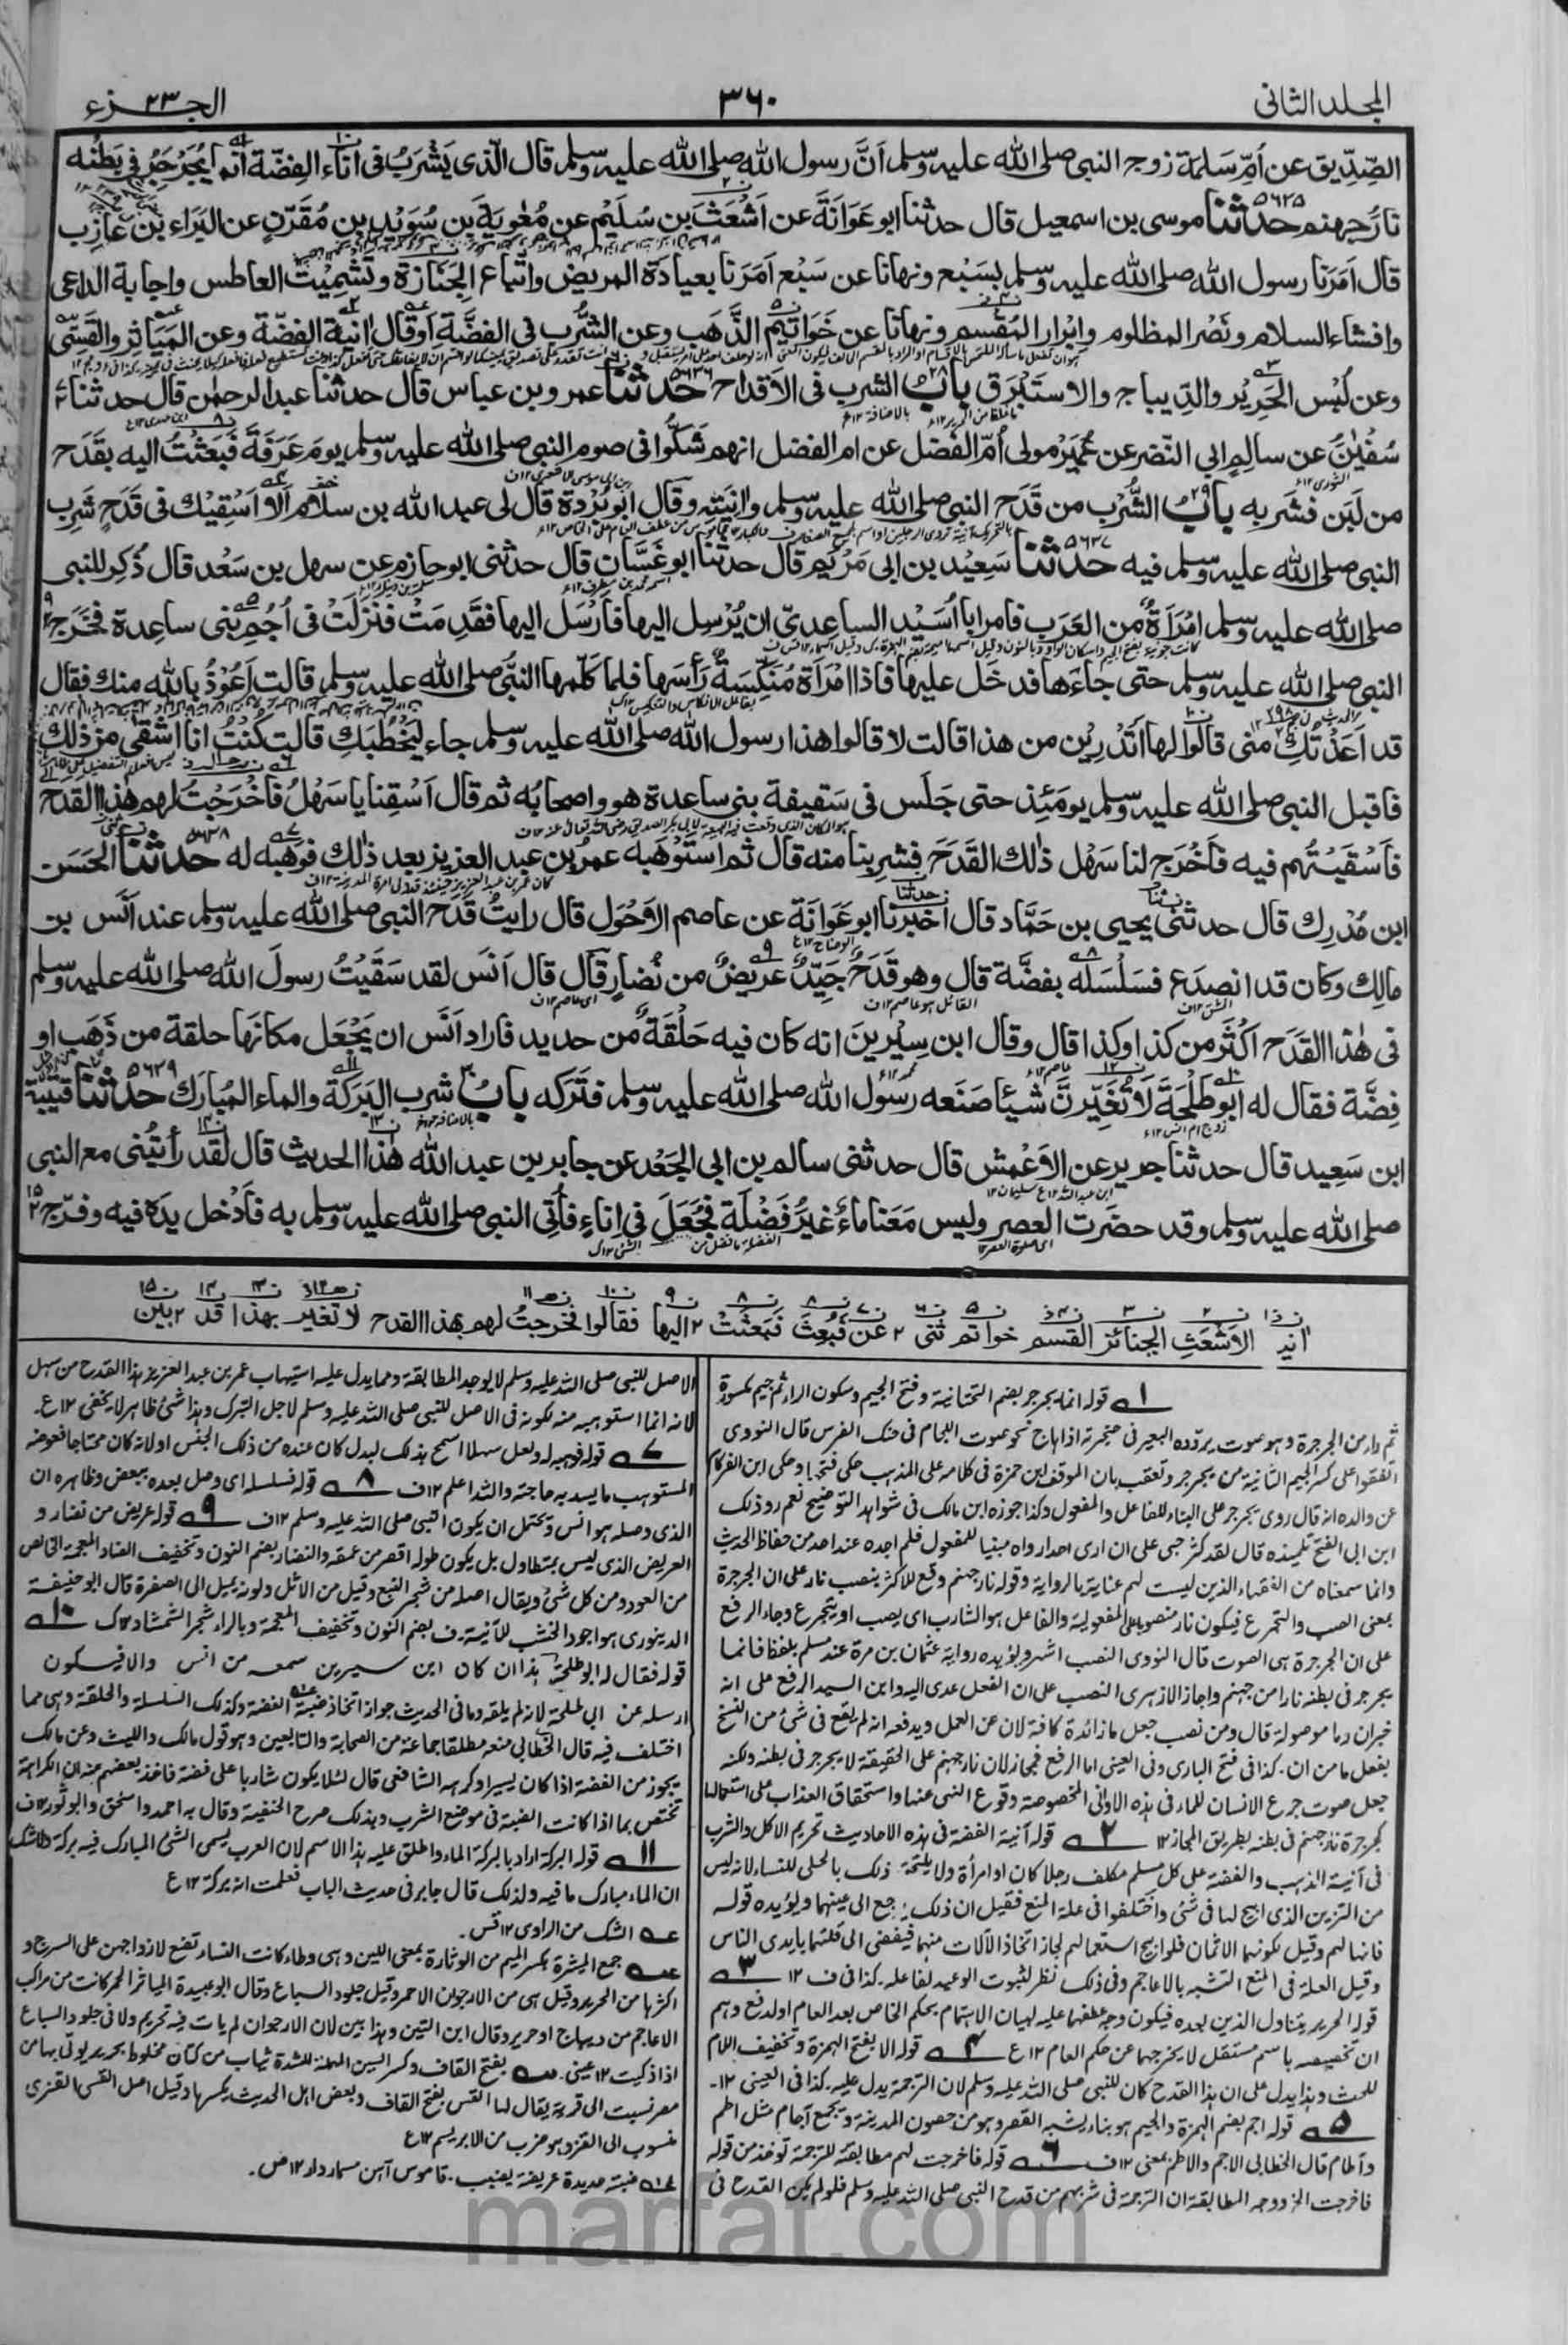 المجلد الثانی
٣٦٠
الجـــزء ٢٣
الصِّدِّيق عن اُمِّ سَلمة زوجِ النبى صلى الله عليه وسلم اَنَّ رسول الله صلى الله عليه وسلم قال الَّذى يَشْرَبُ فى اٰناء الفِضّة اِنَّما يُجَرْجِرُ فى بَطْنِه
نارَ جهنم ٥٦٣٥ حدثنا موسى بن اسمٰعيل قال حدثنا ابو عَوَانَةَ عن اَشْعَثَ بن سُلَيْم عن مُعٰوِيةَ بن سُوَيْدِ بن مُقَرِّنٍ عن البَرَاء بن عازِب
قال اَمَرَنا رسول الله صلى الله عليه وسلم بسَبْع ونهانا عن سَبْع اَمَرَنا بعيادة المريض واتِّباع الجَنَازة وتَشْمِيْت العاطس واجابة الداعى
وافشاء السلام ونَصْر المظلوم وابْرار المُقْسِم ونهانا عن خَوَاتيم الذَّهَب وعن الشُّرب فى الفضَّةِ اَو قال اٰنية الفِضّة وعن المَيَاثِر والقَسِّى
وعن لُبْس الحَرِيْر والدِّيباج والاستَبْرَق بابُ ٢٨ الشرب فى الاَقداح ٥٦٣٦ حدثنا عمرو بن عباس قال حدثنا عبد الرحمٰن قال حدثنا
سُفْيٰنُ عن سالِمٍ ابي النَّضر عن عُمَيْرٍ مولى اُمّ الفَضل عن ام الفضل انهم شَكُّوا فى صوم النبى صلى الله عليه وسلم يومَ عَرَفَةَ فَبَعَثْتُ اليه بقَدَح
من لَبَن فشَرِبه بابُ ٢٩ الشُّرْب من قَدَح النبى صلى الله عليه وسلم واٰنِيَتِه وقال ابو بُرْدة قال لى عبد الله بن سلام اَلا اَسْقِيْك فى قَدَح شَرِب
النبى صلى الله عليه وسلم فيه ٥٦٣٧ حدثنا سَعِيْد بن ابى مَرْيَم قال حدثنا ابو غَسَّان قال حدثنى ابو حازم عن سهل بن سَعْد قال ذُكِر للنبى
صلى الله عليه وسلم امْرَأةٌ من العَرَب فامر ابا اُسَيْد الساعِدىّ ان يُرْسِل اليها فاَرْسَل اليها فقَدِمَتْ فنزلَتْ فى اُجُم بنى ساعِدة فخَرَج
النبى صلى الله عليه وسلم حتى جاءَها فدخَل عليها فاذا امْرَأة مُنَكِّسَةٌ رأسَها فلما كلّمها النبىُّ صلى الله عليه وسلم قالت اَعُوْذُ بالله منك فقال
قد اَعَذْتُكِ منى قالوا لها اَتَدْرِيْن من هذا قالت لا قالوا هذا رسول الله صلى الله عليه وسلم جاء ليَخْطُبَكِ قالت كُنْتُ انا اشقٰى من ذلك
فاقبل النبى صلى الله عليه وسلم يومَئِذ حتى جَلَس فى سَقيفة بنى ساعدة هو واصحابُه ثم قال اَسْقِنا يا سَهْلُ فاَخْرَجْتُ لهم هٰذا القدح
فاَسْقَيْتُهم فيه فاَخْرَج لنا سَهْل ذلك القَدَحَ فشَرِبنا منه قال ثم استَوْهَبه عمرُ بن عبد العزيز بعد ذلك فوَهَبه له ٥٦٣٨ حدثنا الحَسَن
ابن مُدْرِك قال حدثنى يحيى بن حَمَّاد قال اَخْبَرنا ابو عَوَانَة عن عاصم الاَحْوَل قال رايتُ قَدَح النبى صلى الله عليه وسلم عند اَنَس بن
مالِك وكان قد انصدَع فسَلْسَله بفضَّة قال وهو قَدَحٌ جَيّدٌ عريضٌ من نُضار قال قال اَنَس لقد سَقَيْتُ رسولَ الله صلى الله عليه وسلم
فى هٰذا القَدَح اكْثَر من كذا وكذا قال وقال ابن سِيْرين انه كان فيه حَلْقَة من حديد فاراد اَنَس ان يَجْعَل مكانَها حلقة من ذَهَب او
فِضَّة فقال له ابو طَلْحَةَ لا تُغَيِّرَنَّ شيئا صَنَعه رسول الله صلى الله عليه وسلم فتَرَكه بابُ ٣٠ شرب البَرَكة والماء المُبارَك ٥٦٣٩ حدثنا قتيبة
ابن سَعِيد قال حدثنا جرير عن الاَعْمش قال حدثنى سالم بن ابى الجَعْد عن جابر بن عبد الله هٰذا الحديث قال لقد رأيتُنى مع النبى
صلى الله عليه وسلم وقد حضَرت العصر وليس مَعَنا ماءٌ غيرُ فَضْلَة فجُعَلَ فى اِناءٍ فاُتِى النبى صلى الله عليه وسلم به فاَدْخل يدَه فيه وفرّج
الاَشْعَثِ الجنائز القسم خواتم ثنى عن فبُعِثَ فبَعَثَتْ اليها فقالوا فخرجتُ لهم بهذا القدح لا تغير بهذا قد بين
١ قوله انما يجرجر بضم التحتانية وفتح الجيم وسكون الراء ثم جيم مكسورة
ثم راء من الجرجرة وهو صوت يردّده البعير فى حنجرته اذا هاج نحو صوت اللجام فى حنك الفرس قال النووى
اتفقوا على كسر الجيم الثانية من يجرجر وتعقب بان الموفق ابن حمزة فى كلامه على المذهب حكى فتحها وحكى ابن الفركاح
عن والده انه قال روى يجرجر على البناء للفاعل والمفعول وكذا جوزه ابن مالك فى شواهد التوضيح نعم رد ذلك
ابن ابى الفتح تلميذه قال لقد كثر بحثى على ان ارى احدا رواه مبنيا للمفعول فلم اجده عند احد من حفاظ الحديث
وانما سمعناه من الفقهاء الذين ليست لهم عناية بالرواية وقوله نار جهنم وقع للاكثر بنصب نار على ان الجرجرة
بمعنى الصب والتجرع فيكون نار منصوبا على المفعولية والفاعل هو الشارب اى يصب او يتجرع وجاء الرفع
على ان الجرجرة هى الصوت قال النووى النصب اشهر ويؤيده رواية عثمان بن مرة عند مسلم بلفظ فانما
يجرجر فى بطنه نارا من جهنم واجاز الازهرى النصب على ان الفعل عدى اليه وابن السيد الرفع على انه
خبر ان وما موصولة قال ومن نصب جعل ما زائدة كافة لان عن العمل ويدفعه انه لم يقع فى شئ من النسخ
بفصل ما من ان. كذا فى فتح البارى وفى العينى اما الرفع فمجاز لان نار جهنم على الحقيقة لا يجرجر فى بطنه ولكنه
جعل صوت جرع الانسان للماء فى هذه الاوانى المخصوصة وقوع النهى عنها واستحقاق العذاب على استعمالها
كجرجرة نار جهنم فى بطنه بطريق المجاز ١٢ ٢ قوله آنية الفضة فى هذه الاحاديث تحريم الاكل والشرب
فى آنية الذهب والفضة على كل مسلم مكلف رجلا كان او امرأة ولا يلتحق ذلك بالحلى للنساء لانه ليس
من التزين الذى ابيح لها فى شئ واختلفوا فى علة المنع فقيل ان ذلك يرجع الى عينهما ويؤيده قوله
فانها لهم وقيل كونهما الاثمان فلو ابيح استعمالهم لجاز اتخاذ الآلات منهما فيفضى الى قلتهما بايدى الناس
وقيل العلة فى المنع التشبه بالاعاجم وفى ذلك نظر لثبوت الوعيد لفاعله. كذا فى ف ١٢ ٣
قوله الحرير يتناول الذين بعده فيكون وجه عطفها عليه لبيان الاهتمام بحكم الخاص بعد العام او لدفع وهم
ان تخصيصه باسم مستقل لا يخرجها عن حكم العام ١٢ ع ٤ قوله الا بفتح الهمزة وتخفيف اللام
للحث وهذا يدل على ان هذا القدح كان للنبى صلى الله عليه وسلم لان الترجمة يدل عليه. كذا فى العينى ١٢.
٥ قوله اجم بضم الهمزة والجيم هو بناء يشبه القصر وهو من حصون المدينة ويجمع آجام مثل اطم
وآطام قال الخطابى الاجم والاطم بمعنى ١٢ ف ٦ قوله فاخرجت لهم مطابقته للترجمة توخذ من قوله
فاخرجت الخ ووجه المطابقة ان الترجمة فى شربهم من قدح النبى صلى الله عليه وسلم فلو لم يكن القدح فى
الاصل للنبى صلى الله عليه وسلم لا يوجد المطابقة ومما يدل عليه استيهاب عمر بن عبد العزيز هذا القدح من سهل
لانه انما استوهبه منه لكونه فى الاصل للنبى صلى الله عليه وسلم لاجل التبرك وهذا شئ ظاهر لا يخفى ١٢ ع.
٧ قوله فوهبه له ولعل سهلا اسمح بذلك لبدل كان عنده من ذلك الجنس او لانه كان محتاجا فعوضه
المستوهب ما يسد به حاجته والله اعلم ١٢ ف ٨ قوله فسلسله اى وصل بعضه ببعض وظاهره ان
الذى وصله هو انس ويحتمل ان يكون النبى صلى الله عليه وسلم ١٢ ف ٩ قوله عريض من نضار و
العريض الذى ليس بمتطاول بل يكون طوله اقصر من عمقه والنضار بضم النون وتخفيف الضاد المعجمة الخالص
من العود ومن كل شئ ويقال اصله من شجر النبع وقيل من الاثل ولونه يميل الى الصفرة قال ابو حنيفة
الدينورى هو اجود الخشب للآنية. ف بضم النون وتخفيف المعجمة وبالراء شجر الشمشاد ك ١٠
قوله فقال له ابو طلحة هذا ان كان ابن سيرين سمعه من انس والا فيكون
ارسله عن ابى طلحة لانه لم يلقه وما فى الحديث جواز اتخاذ ضبة الفضة وكذلك السلسلة والحلقة وهى مما
اختلف فيه قال الخطابى منعه مطلقا جماعة من الصحابة والتابعين وهو قول مالك والليث وعن مالك
يجوز من الفضة اذا كان يسيرا وكرهه الشافعى قال لئلا يكون شاربا على فضة فاخذ بعضهم منه ان الكراهة
تختص بما اذا كانت الفضة فى موضع الشرب وبذلك صرح الحنفية وقال به احمد واسحق وابو ثور ١٢ ف
١١ قوله البركة اراد بالبركة الماء واطلق عليه هذا الاسم لان العرب يسمى الشئ المبارك فيه بركة ولا شك
ان الماء مبارك ما فيه ولذلك قال جابر فى حديث الباب فعلمت انه بركة ١٢ ع
عه الشك من الراوى ١٢ قس.
عه جمع الميثرة بكسر الميم من الوثارة بمعنى اللين وهى وطاء كانت النساء تضع لازواجهن على السرج و
اكثرها من الحرير وقيل هى من الارجوان الاحمر وقيل جلود السباع وقال ابو عبيدة المياثر الحمر كانت من مراكب
الاعاجم من ديباج او حرير وقال ابن التين وهذا بين لان الارجوان لم يات فيه تحريم ولا فى جلود السباع
اذا ذكيت ١٢ عينى. سه بفتح القاف وكسر السين المهملة المشددة ثياب من كتان مخلوط بحرير يوتى بها من
مصر نسبت الى قرية يقال لها القس بفتح القاف وبعض اهل الحديث يكسرها وقيل اصل القسى القزى
منسوب الى القز وهو ضرب من الابريسم ١٢ ع
ضبة حديدة عريضة يضبب. قاموس آهن مسمار دار ١٢ ص.
marfat.com